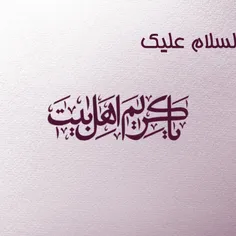 لسلام علیک
یا کریم اهل بیت